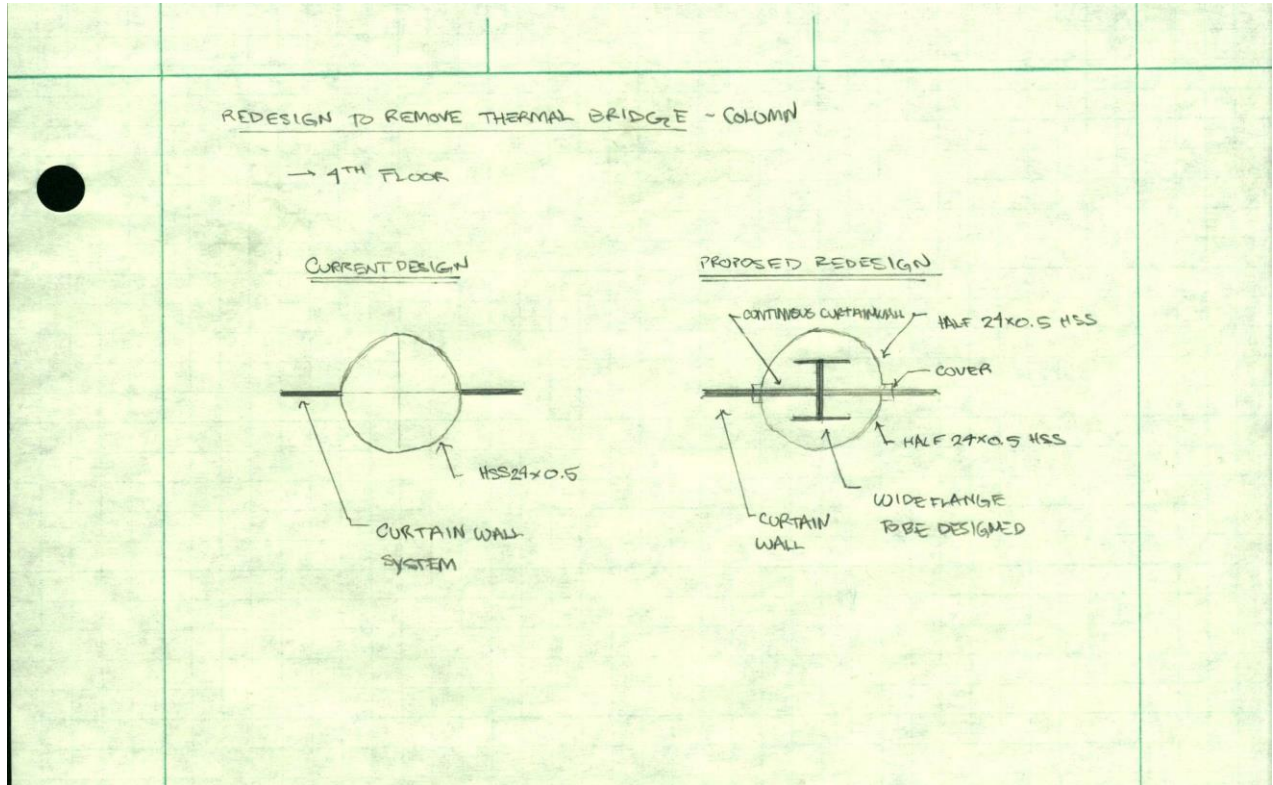 REDESIGN TO REMOVE THERMAL BRIDGE - COLUMN
→ 4TH FLOOR
CURRENT DESIGN
HSS24x0.5
CURTAIN WALL
SYSTEM
PROPOSED REDESIGN
CONTINUOUS CURTAINWALL
HALF 24x0.5 HSS
COVER
HALF 24x0.5 HSS
WIDE FLANGE
TO BE DESIGNED
CURTAIN
WALL